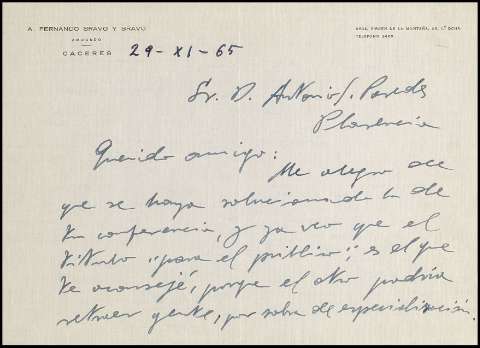 A. FERNANDO BRAVO Y BRAVO
ABOGADO
CACERES
AVDA. VIRGEN DE LA MONTAÑA, 1º DCHA.
TELEFONO
29-XI-65
Sr. D. Antonio S. Paredes
Plasencia
Querido amigo:
Me alegro de
que se haya solucionado lo de
tu conferencia, y ya veo que el
título "para el público", es el que
te aconsejé, porque el otro podría
retraer gente, por sobra de especialización.